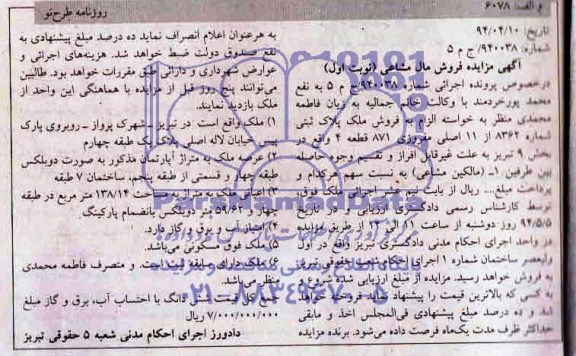 م الف: ۶۰۷۸
روزنامه طرح نو
تاریخ: ۹۴/۰۴/۱۰
شماره: ۹۴۰۰۳۸/ ج م ۵
آگهی مزایده فروش مال مشاعی (نوبت اول)
درخصوص پرونده اجرائی شماره ۹۴۰۰۳۸ ج م ۵ به نفع
محمد پورخردمند با وکالت خانم جمالیه به زیان فاطمه
محمدی منظر به خواسته الزام به فروش ملک پلاک ثبتی
شماره ۸۳۶۲ از ۱۱ اصلی مفروزی ۸۷۱ قطعه ۴ واقع در
بخش ۹ تبریز به علت غیرقابل افراز و تقسیم وجوه حاصله
بین طرفین ۱ـ (مالکین مشاعی) به نسبت سهم هرکدام و
پرداخت مبلغ... ریال از بابت نیم عشر اجرائی ملک فوق،
توسط کارشناس رسمی دادگستری ارزیابی و در تاریخ
۹۴/۵/۵ روز دوشنبه از ساعت ۱۰ الی ۱۲ از طریق مزایده
در واحد اجرای احکام مدنی دادگستری تبریز واقع در اول
ولیعصر ساختمان شماره ۱ اجرای احکام شعبه حقوقی تبریز
به فروش خواهد رسید. مزایده از مبلغ ارزیابی شده شروع و
به کسی که بالاترین قیمت را پیشنهاد نماید فروخته خواهد
شد و ده درصد مبلغ پیشنهادی فی‌المجلس اخذ و مابقی
حداکثر ظرف مدت یک‌ماه فرصت داده می‌شود. برنده مزایده
به هرعنوان اعلام انصراف نماید ده درصد مبلغ پیشنهادی به
نفع صندوق دولت ضبط خواهد شد. هزینه‌های اجرائی و
عوارض شهرداری و دارائی طبق مقررات خواهد بود. طالبین
می‌توانند پنج روز قبل از مزایده با هماهنگی این واحد از
ملک بازدید نمایند.
۱) ملک واقع است در تبریز ـ شهرک پرواز ـ روبروی پارک
پیس خیابان لاله اصلی پلاک یک طبقه چهارم
۲) عرصه ملک به متراژ آپارتمان مذکور به صورت دوبلکس
طبقه چهار و قسمتی از طبقه پنجم، ساختمان ۷ طبقه
۳) اعیان ملک به متراژ به مساحت ۱۳۸/۱۴ متر مربع در طبقه
چهار و ۵۹/۶۲ متر دوبلکس بانضمام پارکینگ
۴) امتیاز آب و برق و گاز دارد.
۵) ملک فوق مسکونی می‌باشد.
۶) ملک دارای سابقه ثبتی است. و متصرف فاطمه محمدی
منظر می‌باشد.
جمع کل قیمت ششدانگ با احتساب آب، برق و گاز مبلغ
۷/۰۰۰/۰۰۰/۰۰۰ ریال
دادورز اجرای احکام مدنی شعبه ۵ حقوقی تبریز
ParsNamadData